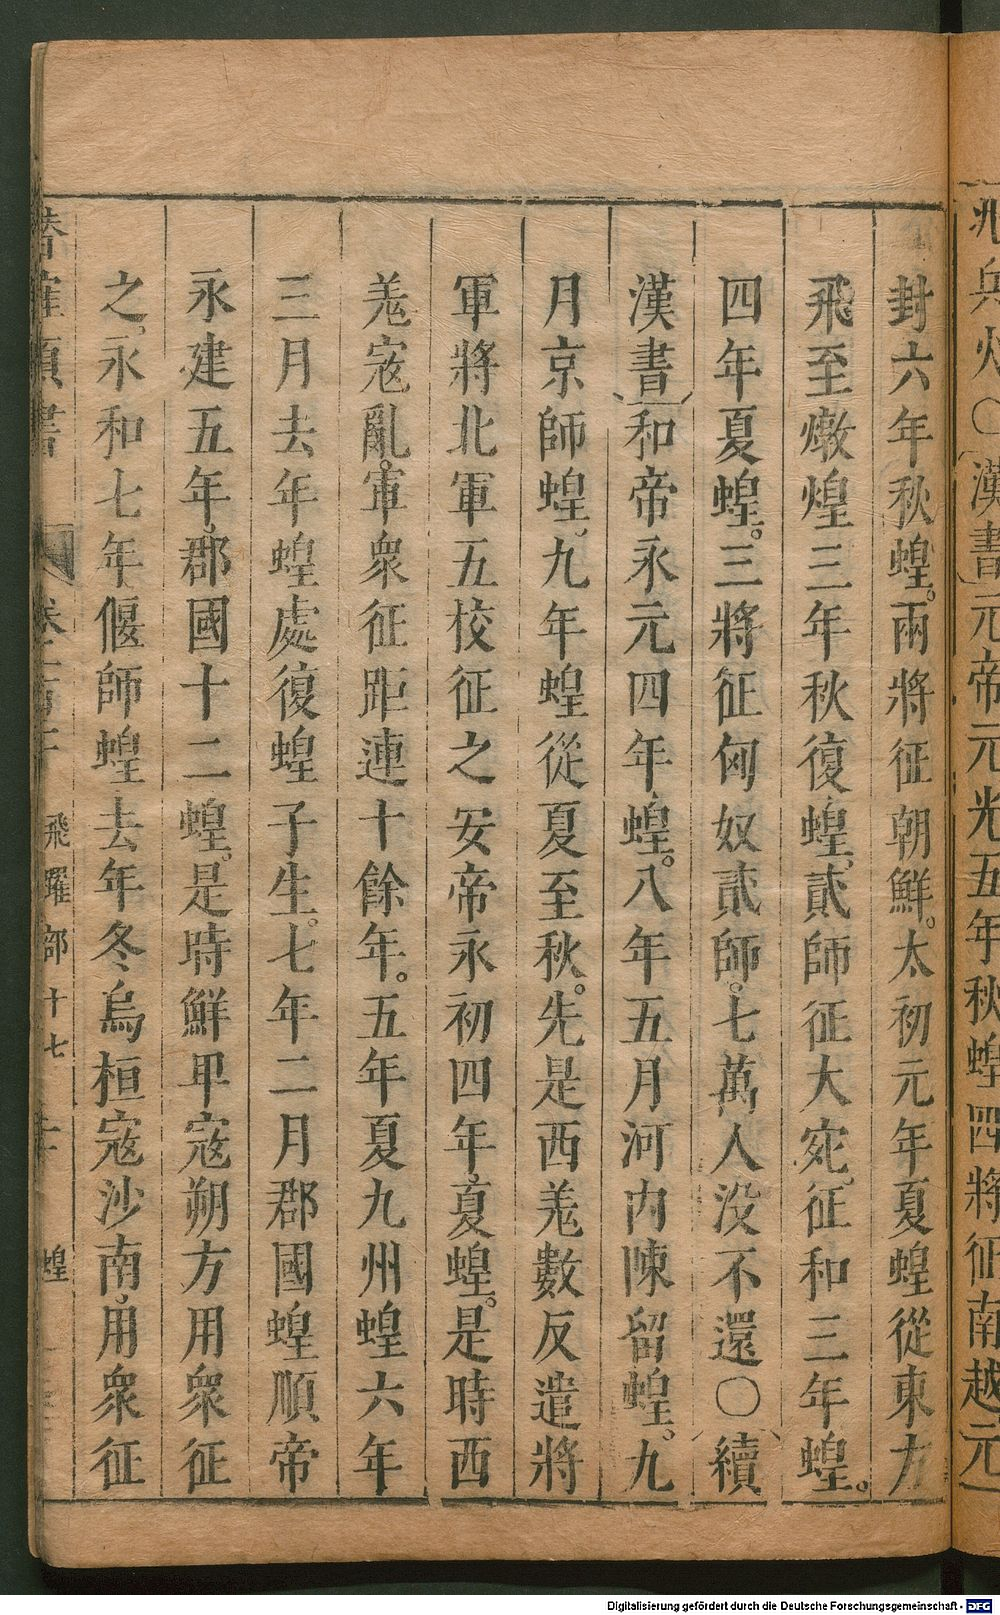 兵火○漢書元帝元光五年秋蝗四將征南越元
封六年秋蝗。兩將征朝鮮。太初元年夏蝗從東方
飛至燉煌三年秋復蝗。貳師征大宛。征和三年蝗。
四年夏蝗。三將征匈奴貳師。七萬人没不還○續
漢書和帝永元四年蝗。八年五月河内陳留蝗。九
月京師蝗。九年蝗從夏至秋。先是西羗數反遣將
軍將北軍五校征之安帝永初四年夏蝗。是時西
羗寇亂。軍衆征距連十餘年。五年夏九州蝗六年
三月去年蝗處復蝗子生。七年二月郡國蝗順帝
永建五年郡國十二蝗。是時鮮甲寇朔方用衆征
之永和七年偃師蝗去年冬烏桓寇沙南用衆征
類書 飛躍部十七 蝗
Digitalisierung gefördert durch die Deutsche Forschungsgemeinschaft - DFG